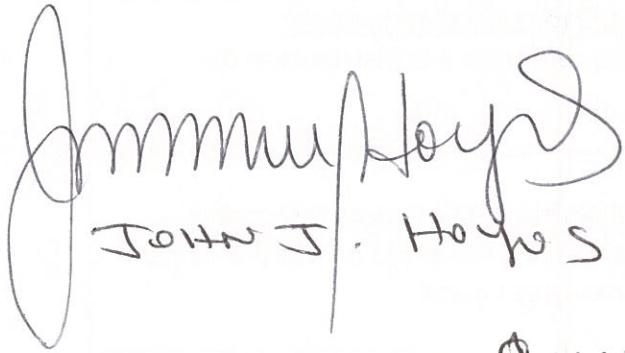 Jimmy Hoyos
JOHN J. Hoyos